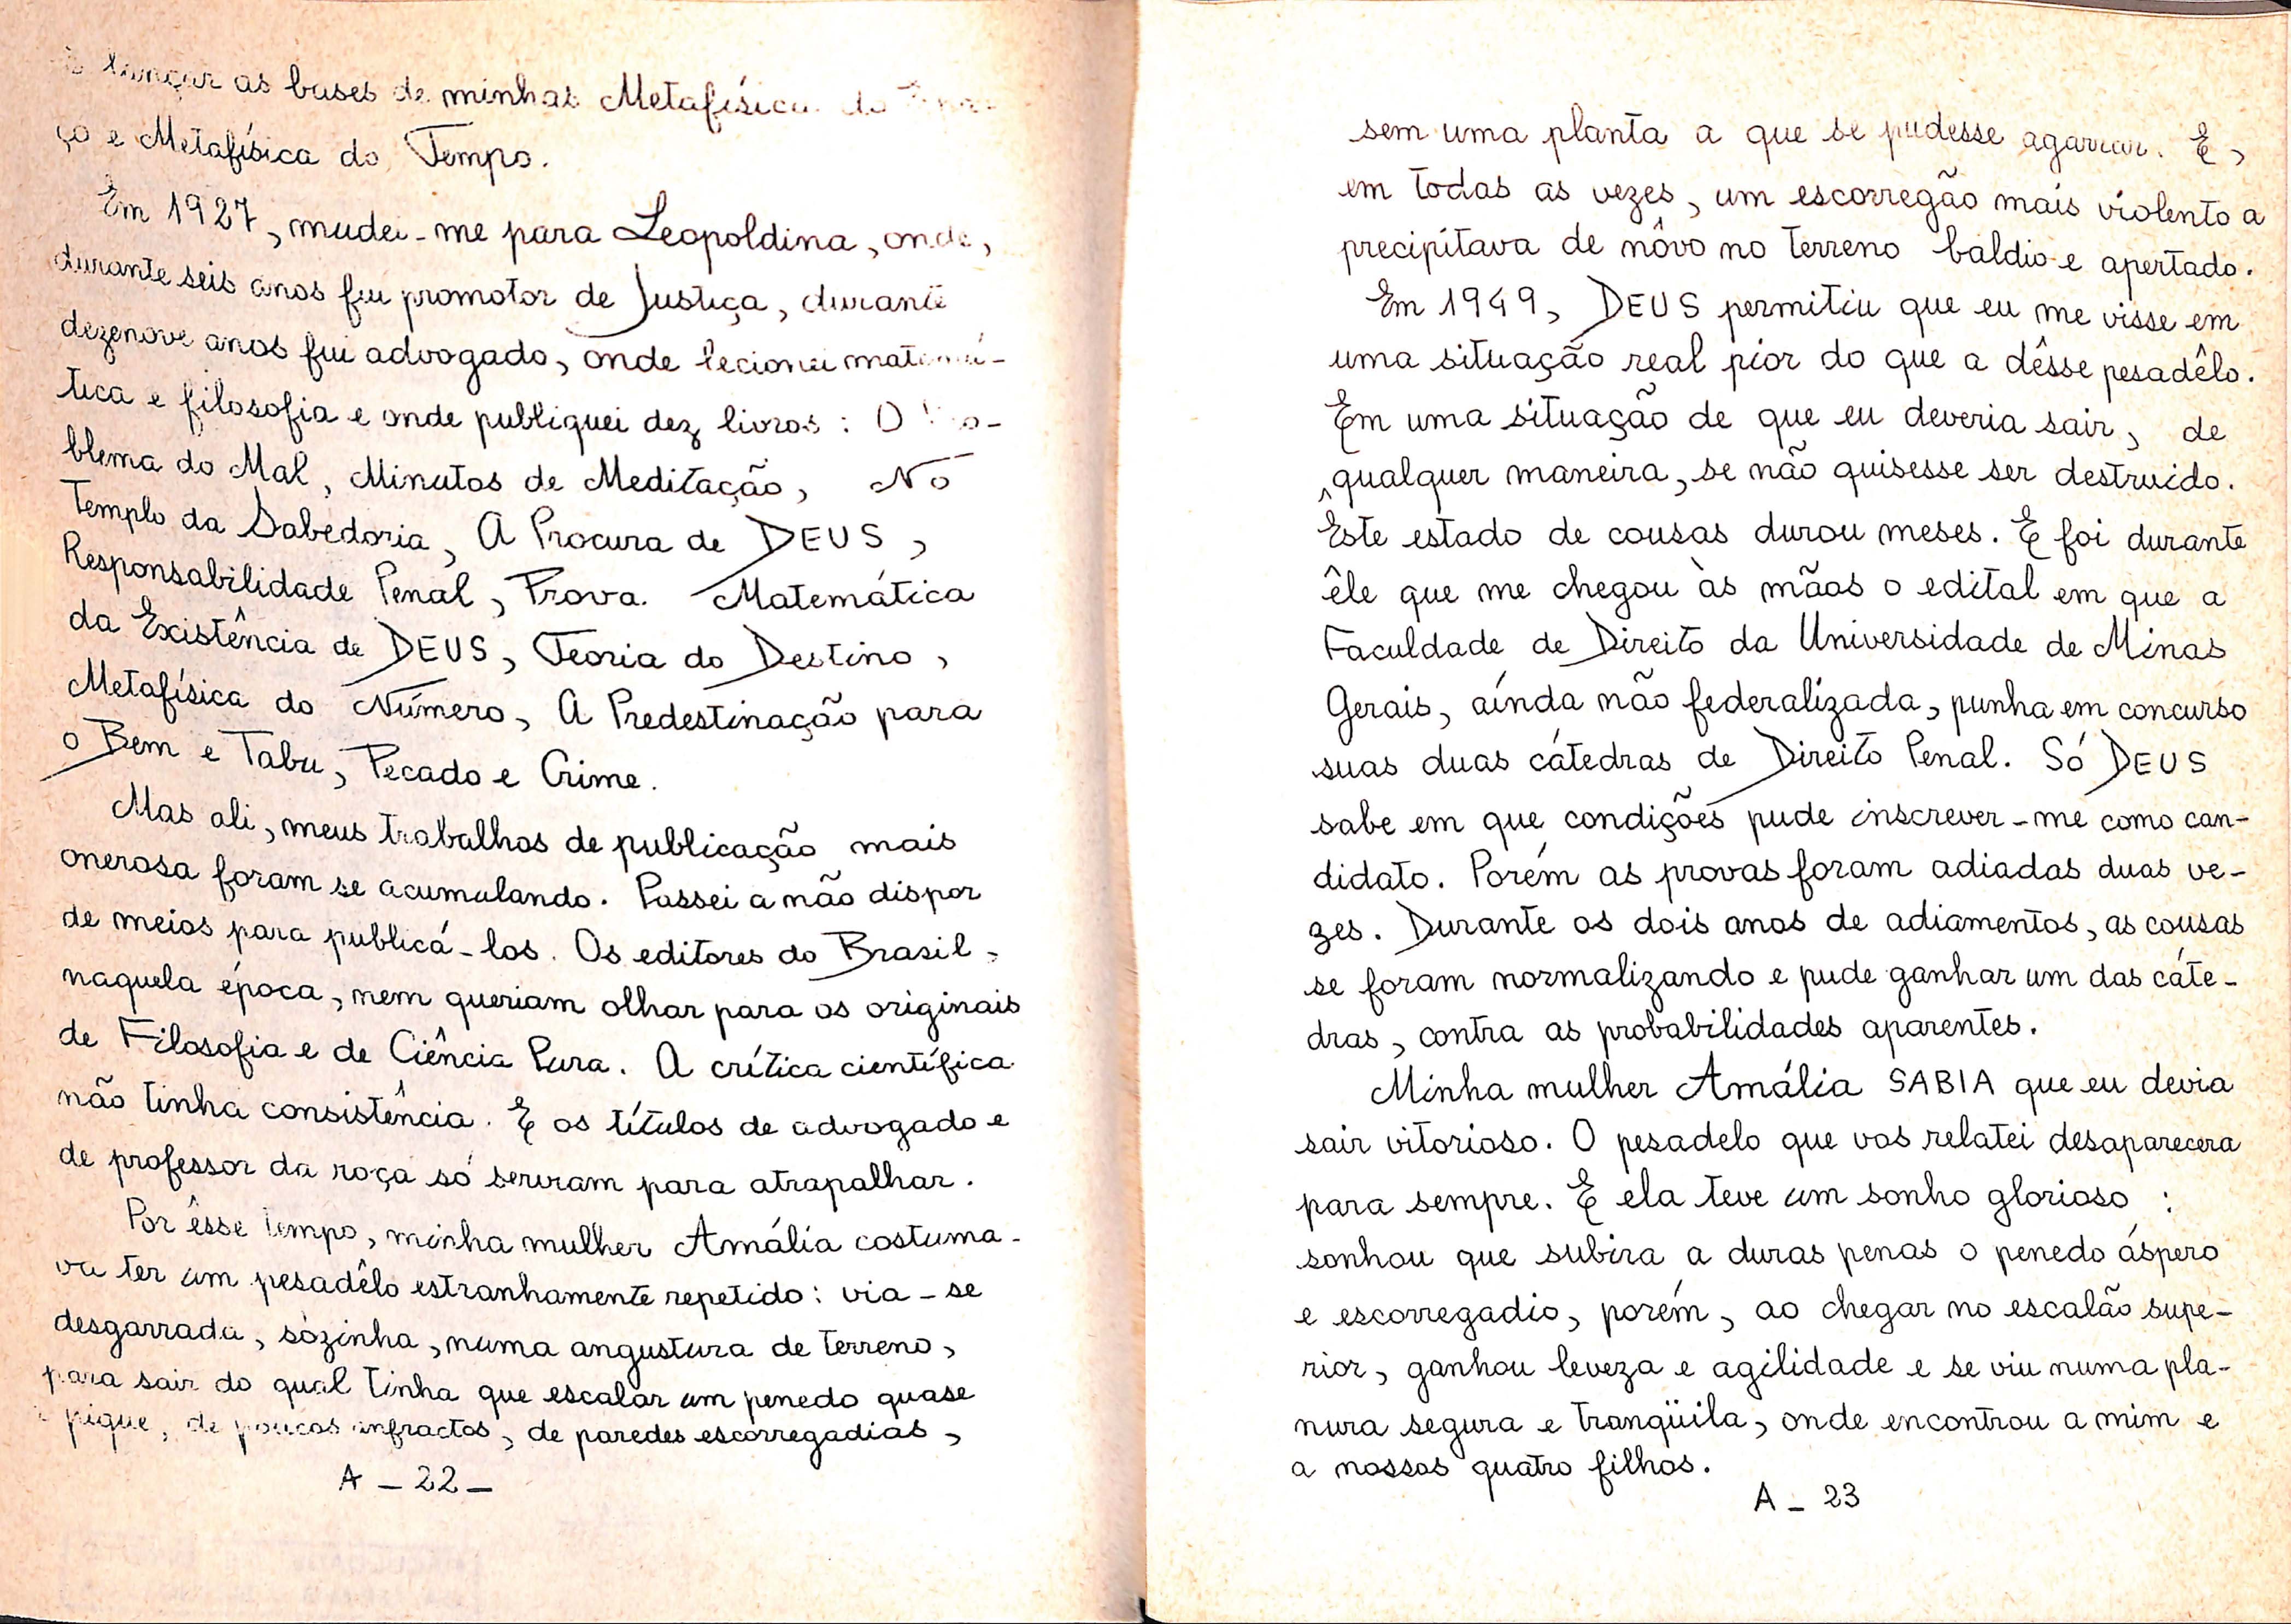 lançar as bases de minhas Metafísica do
ço e Metafísica do Tempo.
Em 1927, mudei-me para Leopoldina, onde,
durante seis anos fui promotor de Justiça, durante
dezenove anos fui advogado, onde lecionei matemá-
tica e filosofia e onde publiquei dez livros: O Pro-
blema do Mal, Minutos de Meditação, No
Templo da Sabedoria, A Procura de DEUS,
Responsabilidade Penal, Prova Matemática
da Existência de DEUS, Teoria do Destino,
Metafísica do Número, A Predestinação para
o Bem e Tabu, Pecado e Crime.
Mas ali, meus trabalhos de publicação mais
onerosa foram se acumulando. Passei a não dispor
de meios para publicá-los. Os editores do Brasil,
naquela época, nem queriam olhar para os originais
de Filosofia e de Ciência Pura. A crítica científica
não tinha consistência. E os títulos de advogado e
de professor da roça só serviram para atrapalhar.
Por êsse tempo, minha mulher Amália costuma-
va ter um pesadêlo estranhamente repetido: via-se
desgarrada, sòzinha, numa angustura de terreno,
para sair do qual tinha que escalar um penedo quase
a pique, de poucos anfractos, de paredes escorregadias,
A - 22 -
sem uma planta a que se pudesse agarrar. E,
em todas as vezes, um escorregão mais violento a
precipitava de nôvo no terreno baldio e apertado.
Em 1949, DEUS permitiu que eu me visse em
uma situação real pior do que a dêsse pesadêlo.
Em uma situação de que eu deveria sair, de
qualquer maneira, se não quisesse ser destruido.
Êste estado de cousas durou meses. E foi durante
êle que me chegou às mãos o edital em que a
Faculdade de Direito da Universidade de Minas
Gerais, aínda não federalizada, punha em concurso
suas duas cátedras de Direito Penal. Só DEUS
sabe em que condições pude inscrever-me como can-
didato. Porém as provas foram adiadas duas ve-
zes. Durante os dois anos de adiamentos, as cousas
se foram normalizando e pude ganhar um das cáte-
dras, contra as probabilidades aparentes.
Minha mulher Amália SABIA que eu devia
sair vitorioso. O pesadelo que vos relatei desaparecera
para sempre. E ela teve um sonho glorioso :
sonhou que subira a duras penas o penedo áspero
e escorregadio, porém, ao chegar no escalão supe-
rior, ganhou leveza e agilidade e se viu numa pla-
nura segura e tranqüila, onde encontrou a mim e
a nossos quatro filhos.
A - 23